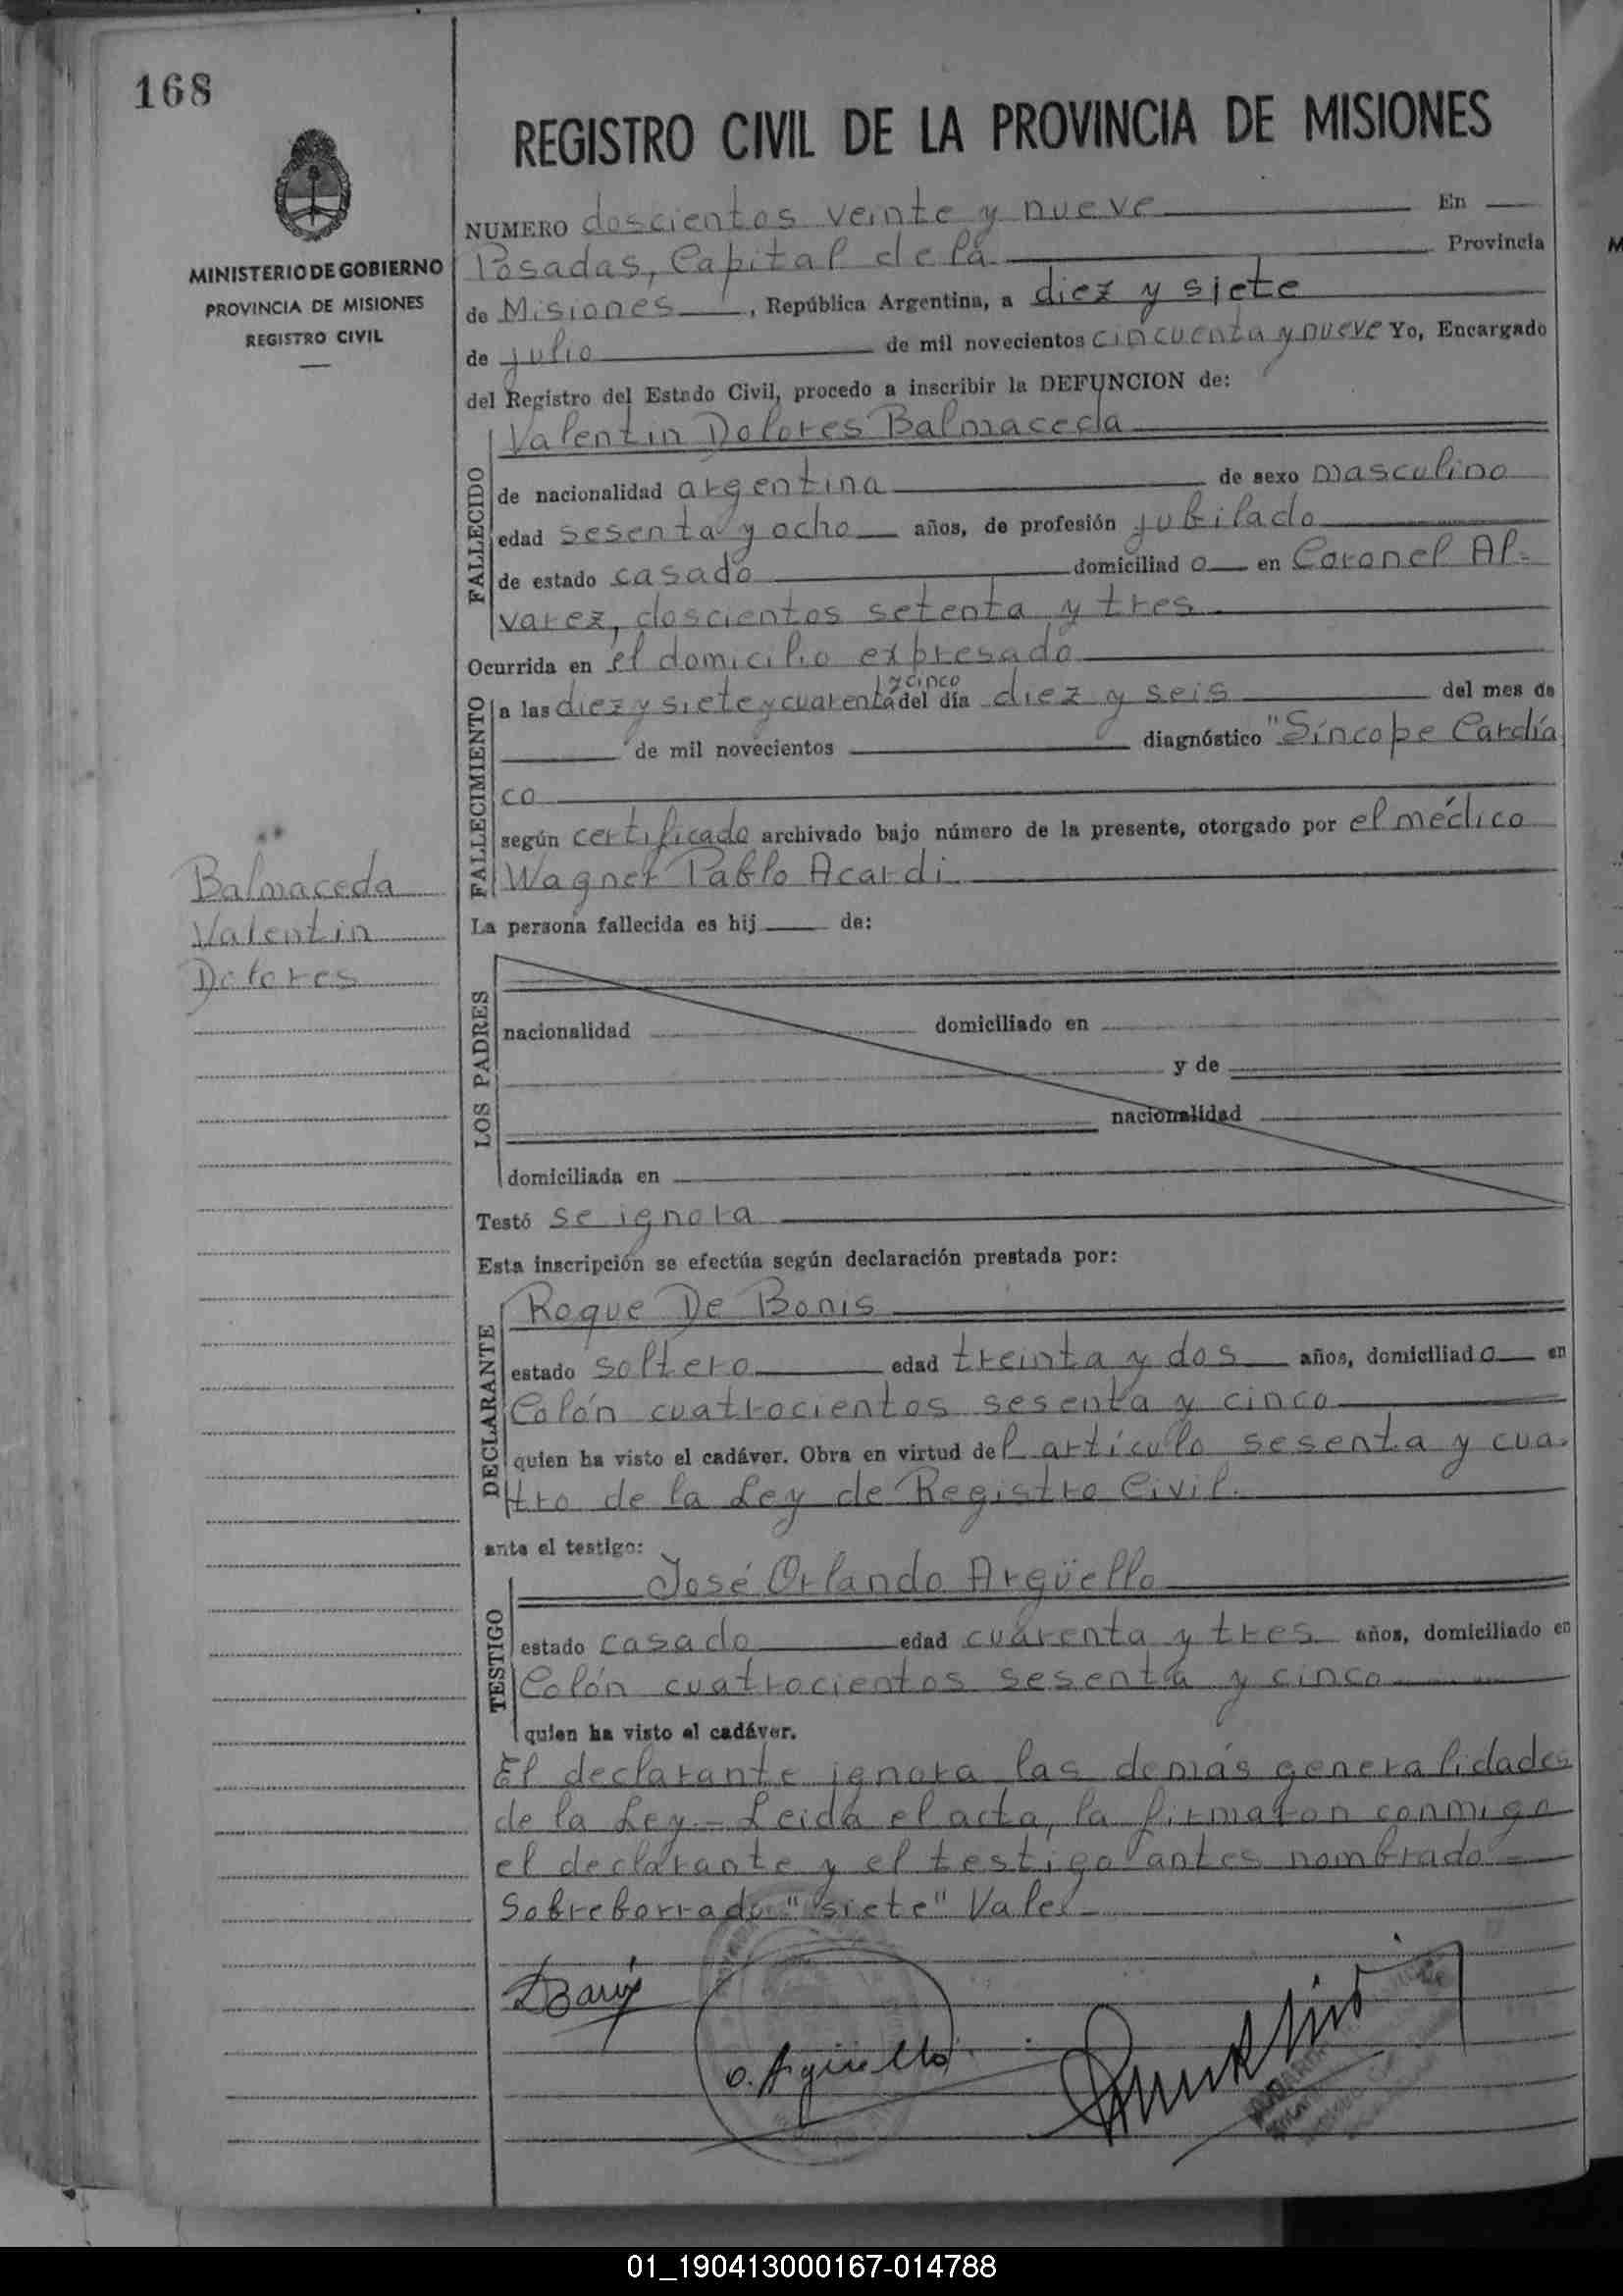 168
REGISTRO CIVIL DE LA PROVINCIA DE MISIONES
MINISTERIO DE GOBIERNO
PROVINCIA DE MISIONES
REGISTRO CIVIL
NUMERO doscientos veinte y nueve En
Posadas, Capital de la Provincia
de Misiones, República Argentina, a diez y siete
de julio de mil novecientos cincuenta y nueve Yo, Encargado
del Registro del Estado Civil, procedo a inscribir la DEFUNCION de:
FALLECIDO
Valentin Dolores Balmaceda
de nacionalidad argentina de sexo masculino
edad sesenta y ocho años, de profesión jubilado
de estado casado domiciliad o en Coronel Al-
varez, doscientos setenta y tres
Ocurrida en el domicilio expresado
FALLECIMIENTO
y cinco
a las diez y siete y cuarenta del día diez y seis del mes de
de mil novecientos diagnóstico "Síncope Cardía
co
según certificado archivado bajo número de la presente, otorgado por el médico
Wagner Pablo Acardi
Balmaceda
Valentin
Dolores
La persona fallecida es hij de:
LOS PADRES
nacionalidad domiciliado en
y de
nacionalidad
domiciliada en
Testó se ignora
Esta inscripción se efectúa según declaración prestada por:
DECLARANTE
Roque De Bonis
estado soltero edad treinta y dos años, domiciliado en
Colón cuatrocientos sesenta y cinco
quien ha visto el cadáver. Obra en virtud del artículo sesenta y cua-
tro de la Ley de Registro Civil.
ante el testigo:
TESTIGO
José Orlando Argüello
estado casado edad cuarenta y tres años, domiciliado en
Colón cuatrocientos sesenta y cinco
quien ha visto el cadáver.
El declarante ignora las demás generalidades
de la Ley - Leida el acta, la firmaron conmigo
el declarante y el testigo antes nombrado -
Sobreborrado "siete" Vale
O. Argüello
01_190413000167-014788